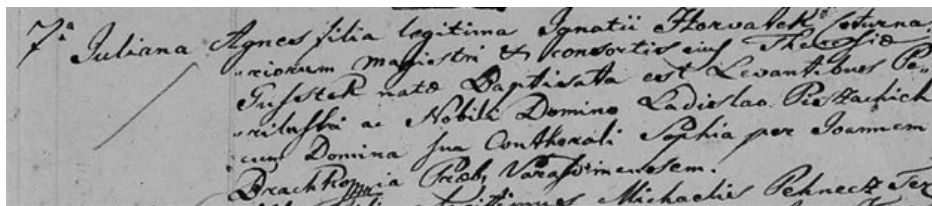 7a Juliana Agnes filia legitima Ignatii Horvatek Coturna
riorum magistri & consortis eius Theresiæ
Tussstek natæ Baptisata est Levantibus Pe
rilustri ac Nobili Domino Ladislao Pieszachich
cum Domina sua Conthorali Sophia per Joannem
Præb. Varasdinensem.
Michaelis Pehnecz